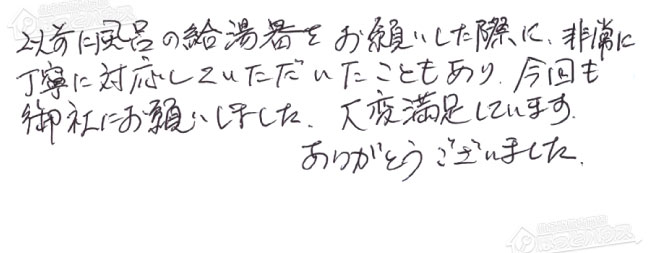 以前に風呂の給湯器をお願いした際に、非常に
丁寧に対応していただいたこともあり、今回も
御社にお願いしました、大変満足しています.
ありがとうございました.